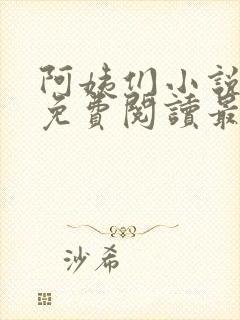 阿姨们小說
免費閱讀最
沙希